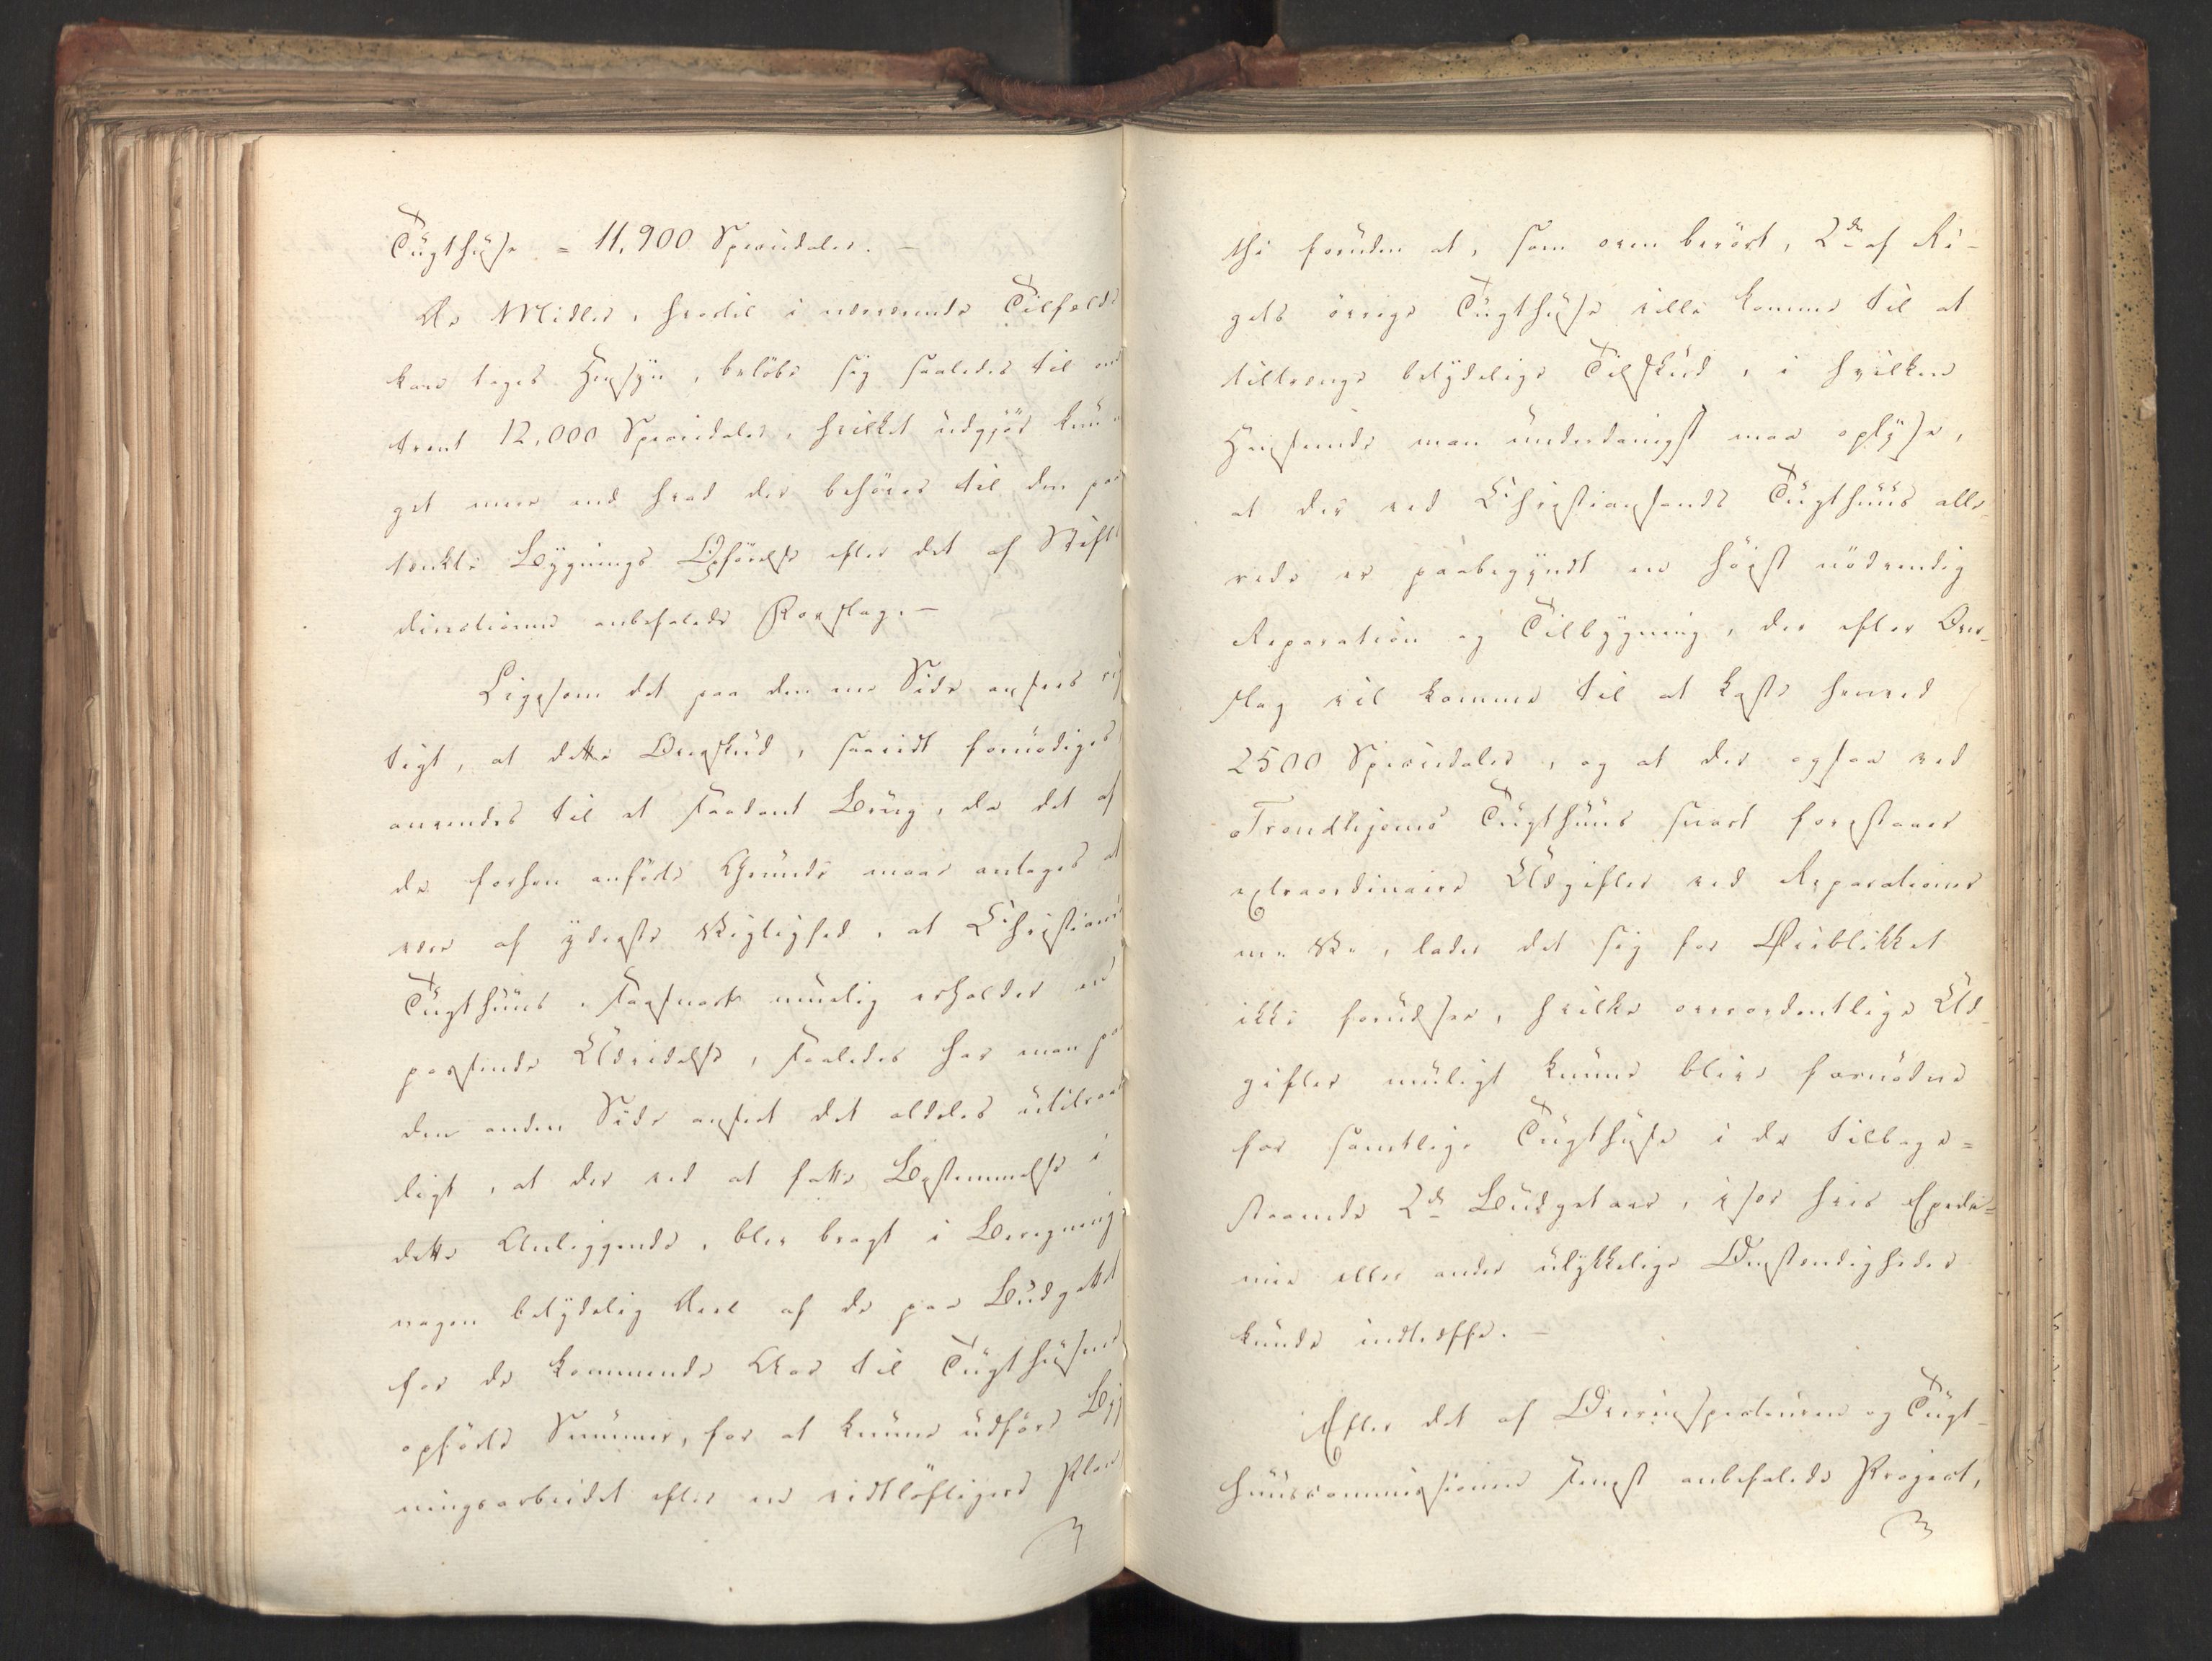 Tugthuse = 11.900 Speciedaler. —
De Midler, hvortil i nærværende Tilfælde
kan tages Hensyn, beløbe sig saaledes til om
trent 12.000 Speciedaler, hvilket udgjør kun
get mere end hvad der behøves til den paa
tænkte Bygnings Opførelse efter det af Stifts
directionen anbefalede Forslag. —
Ligesom det paa den ene Side ansees rig
tigt, at dette Overskud, saavidt fornødiges,
anvendes til et saadant Brug, da det af
de forhen anførte Grunde maae antages at
være af yderste Vigtighed, at Christiania
Tugthuus, saasnart muelig erholder en
passende Udvidelse, saaledes har man paa
den anden Side anseet det aldeles utilraade
ligt, at der ved at fatte Bestemmelse i
dette Anliggende, blev bragt i Beregning
nogen betydelig Deel af de paa Budgettet
for de kommende Aar til Tugthusene
opførte Summer, for at kunne udføre Byg
ningsarbeidet efter en vidtløftigere Plan
thi foruden at, som oven berørt, 2de af Ri-
gets øvrige Tugthuse ville komme til at
tiltrænge betydelige Tilskud, i hvilken
Henseende man underdanigst maa oplyse,
at der ved Christiansands Tugthuus alle-
rede er paabegyndt en høist nødvendig
Reparation og Tilbygning, der efter Over-
slag vil komme til at koste henved
2500 Speciedaler, og at der ogsaa ved
Trondhjems Tugthuus snart forestaaer
extraordinaire Udgifter ved Reparationer
m. V. , lader det sig for Øieblikket
ikke forudsee, hvilke overordentlige Ud-
gifter muligt kunne blive fornødne
for samtlige Tugthuse i de tilbage=
staaende 2de Budgetaar, især hvis Epede=
mie eller andre ulykkelige Omstændigheder
kunde indtræffe. —
Efter det af Overinspecteuren og Tugt-
huuscommissionen senest anbefalede Project,